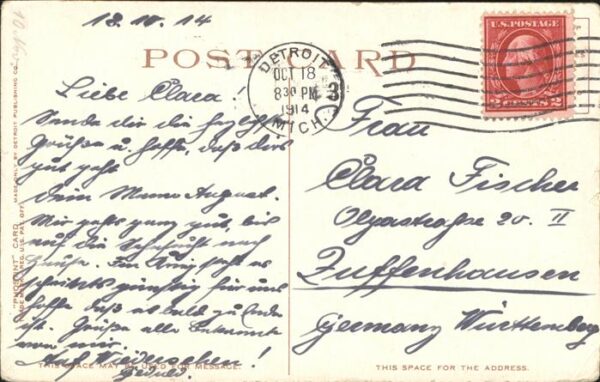 18.10.14
POST CARD
DETROIT
OCT 18
8 30 PM
1914
MICH.
3
U.S. POSTAGE
2 CENTS 2
Liebe Clara!
Sende dir die herzl.
Grüße u. hoffe, daß dirs
gut geht
dein Mann August.
Mir gehts ganz gut, bis
auf die Sehnsucht nach
Hause. Der Krieg steht es
scheints günstig für uns
hoffe daß es bald zu Ende
ist. Grüße alle Bekannte
von mir.
Auf Wiedersehen!
Frau
Clara Fischer
Olgastraße 20. II
Zuffenhausen
Germany Württemberg
"PHOSTINT" CARD
MADE ONLY BY DETROIT PUBLISHING CO.
TRADE MARK REG. U.S. PAT. OFF.
THIS SPACE MAY BE USED FOR MESSAGE.
THIS SPACE FOR THE ADDRESS.